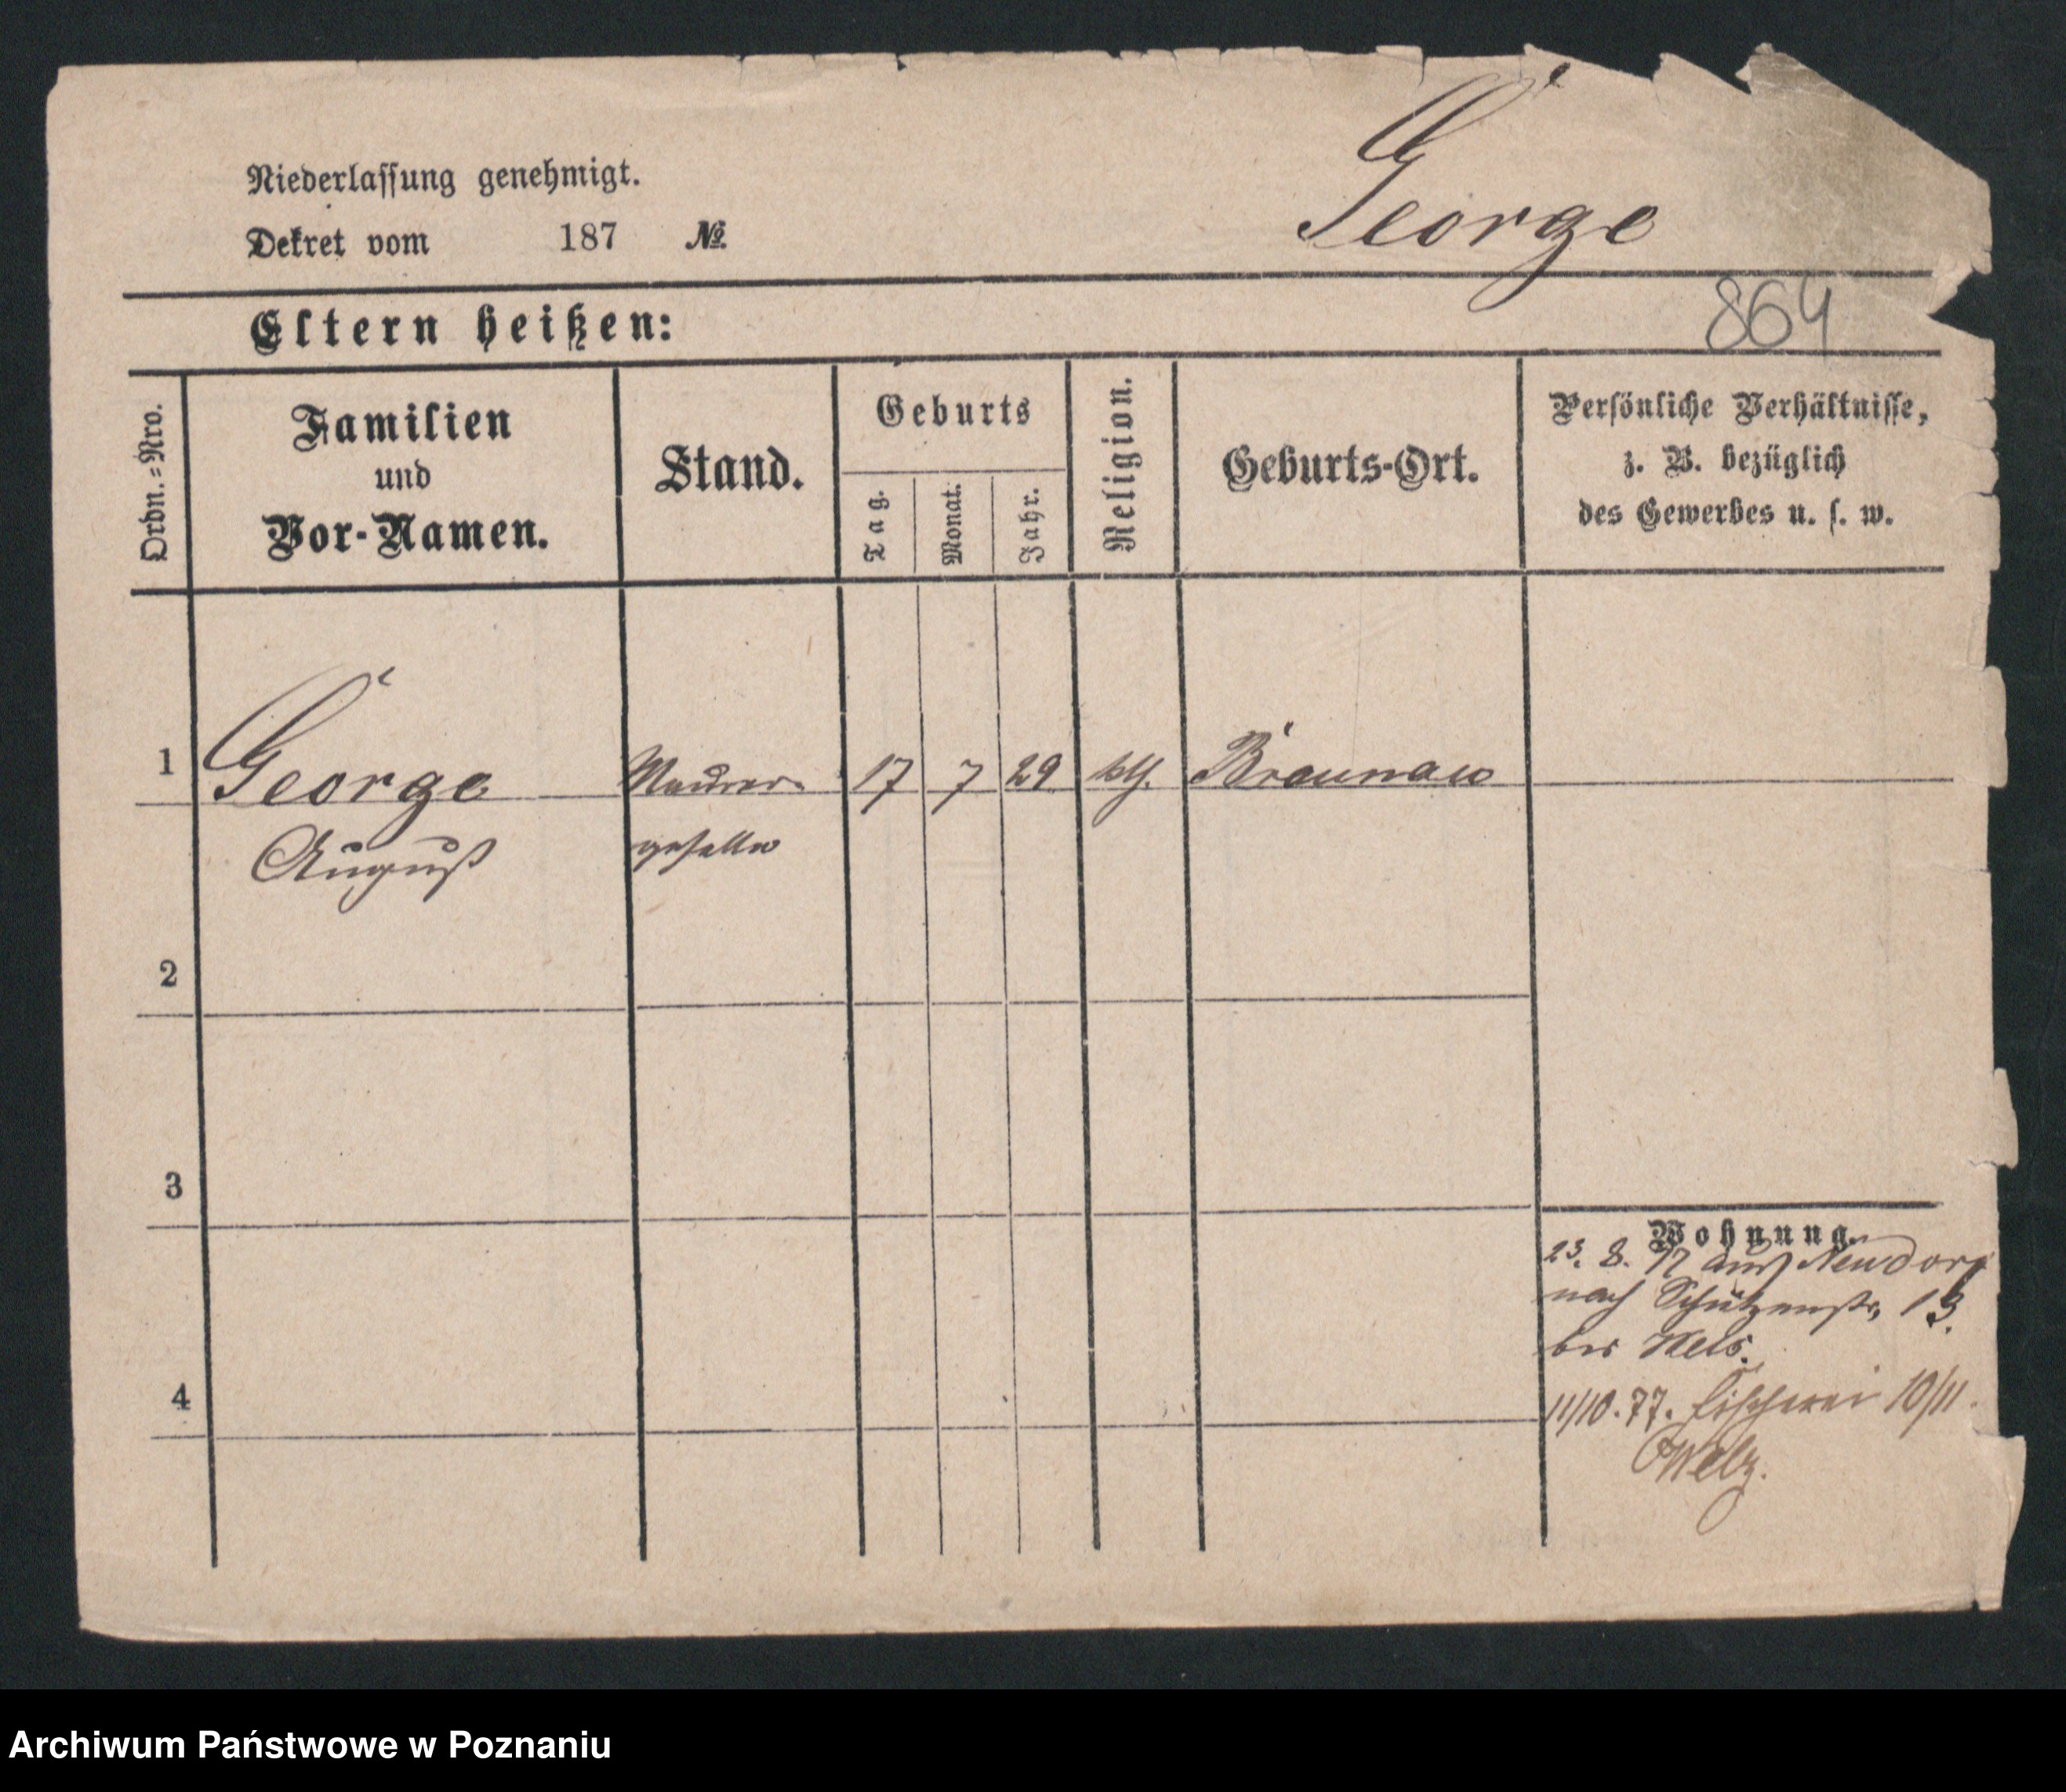 George
Niederlassung genehmigt.
Dekret vom 187 №
864
Eltern heißen:
Ordn.=Nro.
Familien
und
Vor-Namen.
Stand.
Geburts
Tag.
Monat.
Jahr.
Religion.
Geburts-Ort.
Persönliche Verhältnisse,
z. B. bezüglich
des Gewerbes u. s. w.
1 George Maurer- 17 7 29 kth. Braunau
August geselle
2
3
Wohnung.
23. 8. 77 aus Neudorf
nach Schützenstr. 13.
bei
4
11/10. 77. Fischerei 10/11.
Welz.
Archiwum Państwowe w Poznaniu